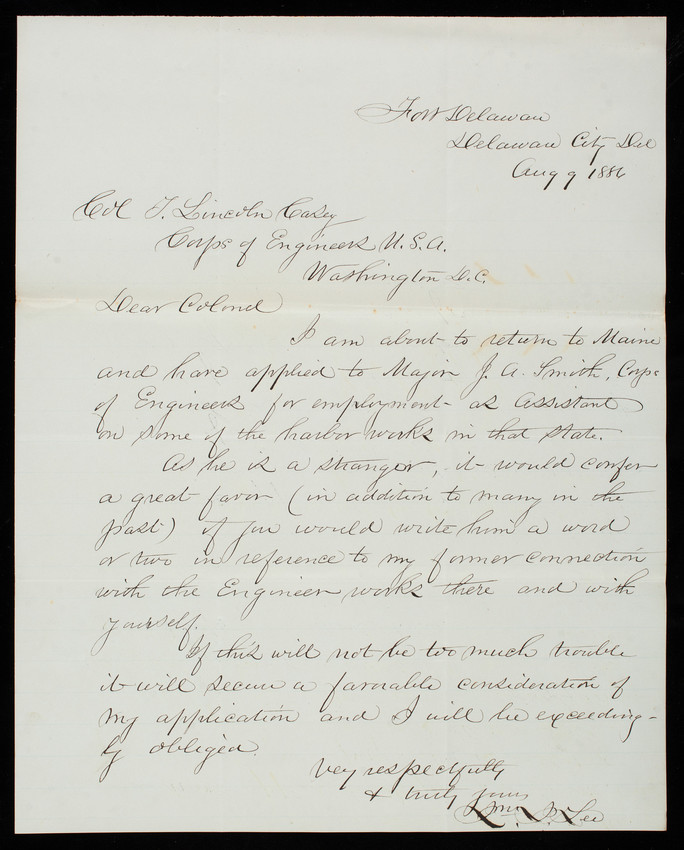 Fort Delaware
Delaware City Del
Aug 9 1886
Col T. Lincoln Casey
Corps of Engineers U.S.A.
Washington D.C.
Dear Colonel
I am about to return to Maine
and have applied to Major J. A. Smith, Corps
of Engineers for employment as Assistant
on some of the harbor works in that State.
As he is a stranger, it would confer
a great favor (in addition to many in the
past) if you would write him a word
or two in reference to my former connection
with the Engineer works there and with
yourself.
If this will not be too much trouble
it will secure a favorable consideration of
my application and I will be exceeding-
ly obliged.
Very respectfully
& truly yours
Wm. P. Lee